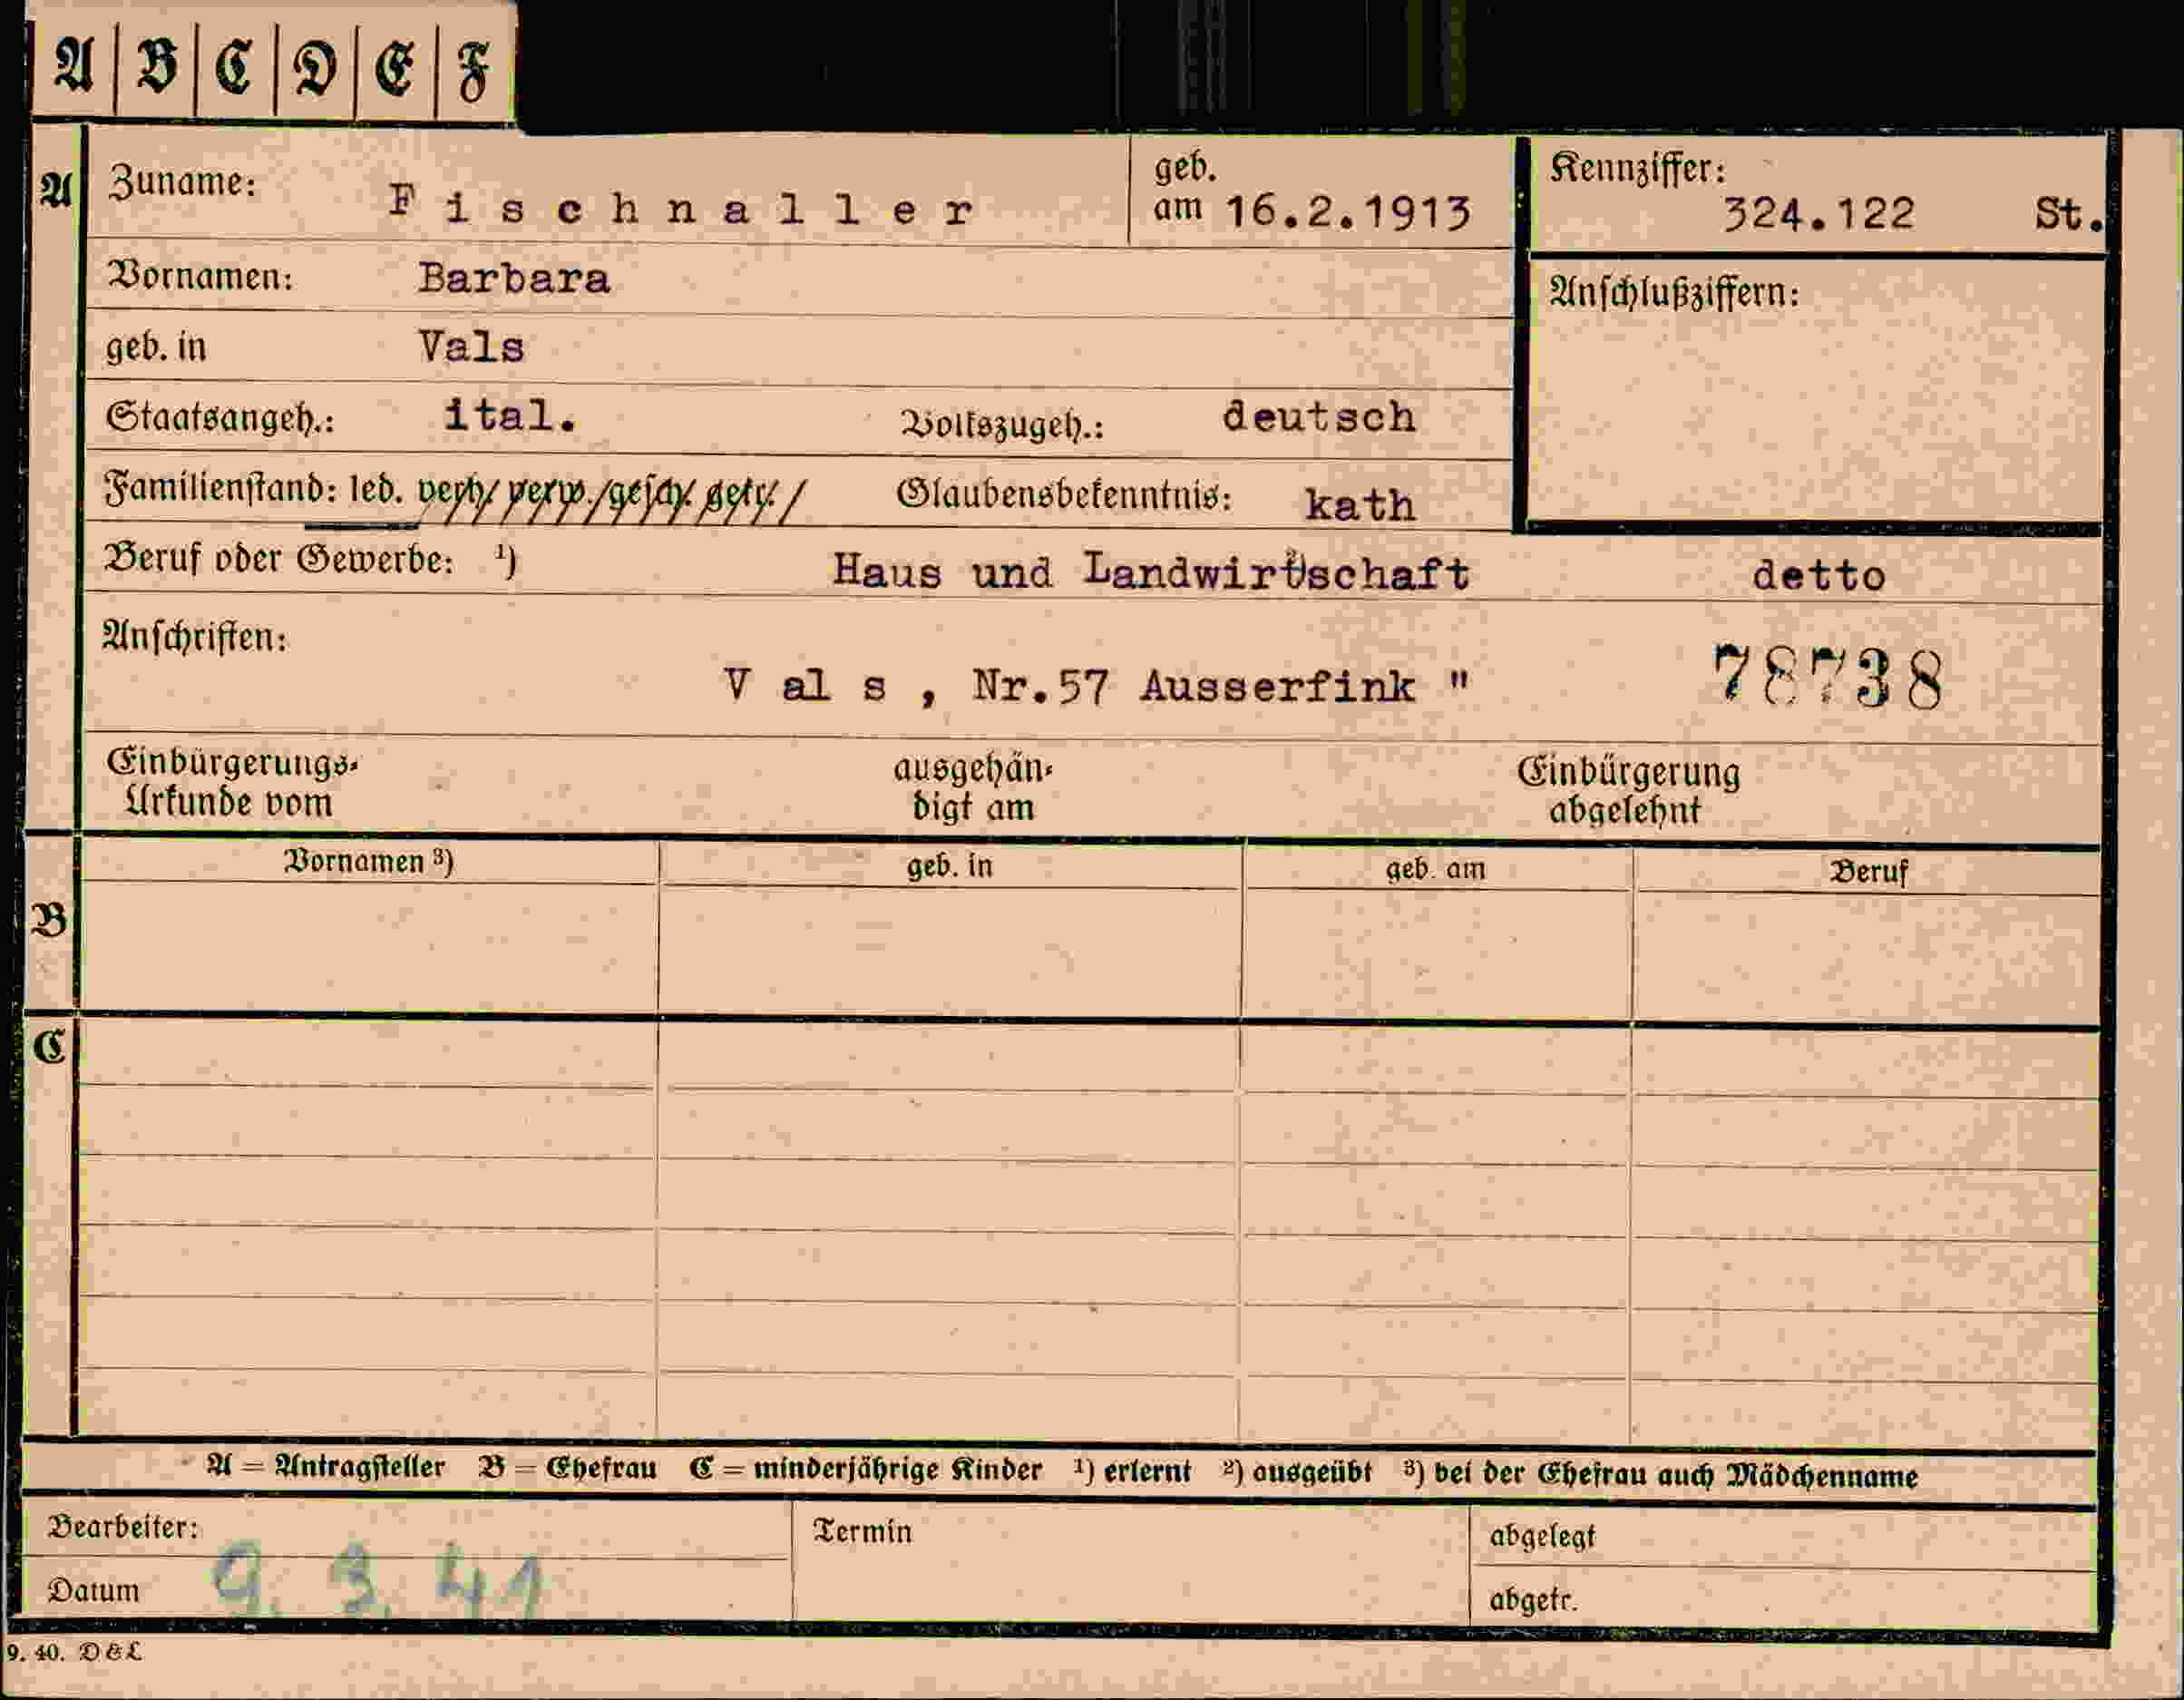 A B C D E F
A Zuname: Fischnaller geb. am 16.2.1913 Kennziffer: 324.122 St.
Vornamen: Barbara Anschlußziffern:
geb. in Vals
Staatsangeh.: ital. Volkszugeh.: deutsch
Familienstand: led. verh. verw. gesch. getr. Glaubensbekenntnis: kath
Beruf oder Gewerbe: ¹) Haus und Landwirtschaft detto
Anschriften:
V al s , Nr.57 Ausserfink " 78738
Einbürgerungs- Urkunde vom ausgehän- digt am Einbürgerung abgelehnt
Vornamen ³) geb. in geb. am Beruf
B
C
A = Antragsteller B = Ehefrau C = minderjährige Kinder ¹) erlernt ²) ausgeübt ³) bei der Ehefrau auch Mädchenname
Bearbeiter: Termin abgelegt
Datum 9. 3. 41 abgetr.
9. 40. D & L